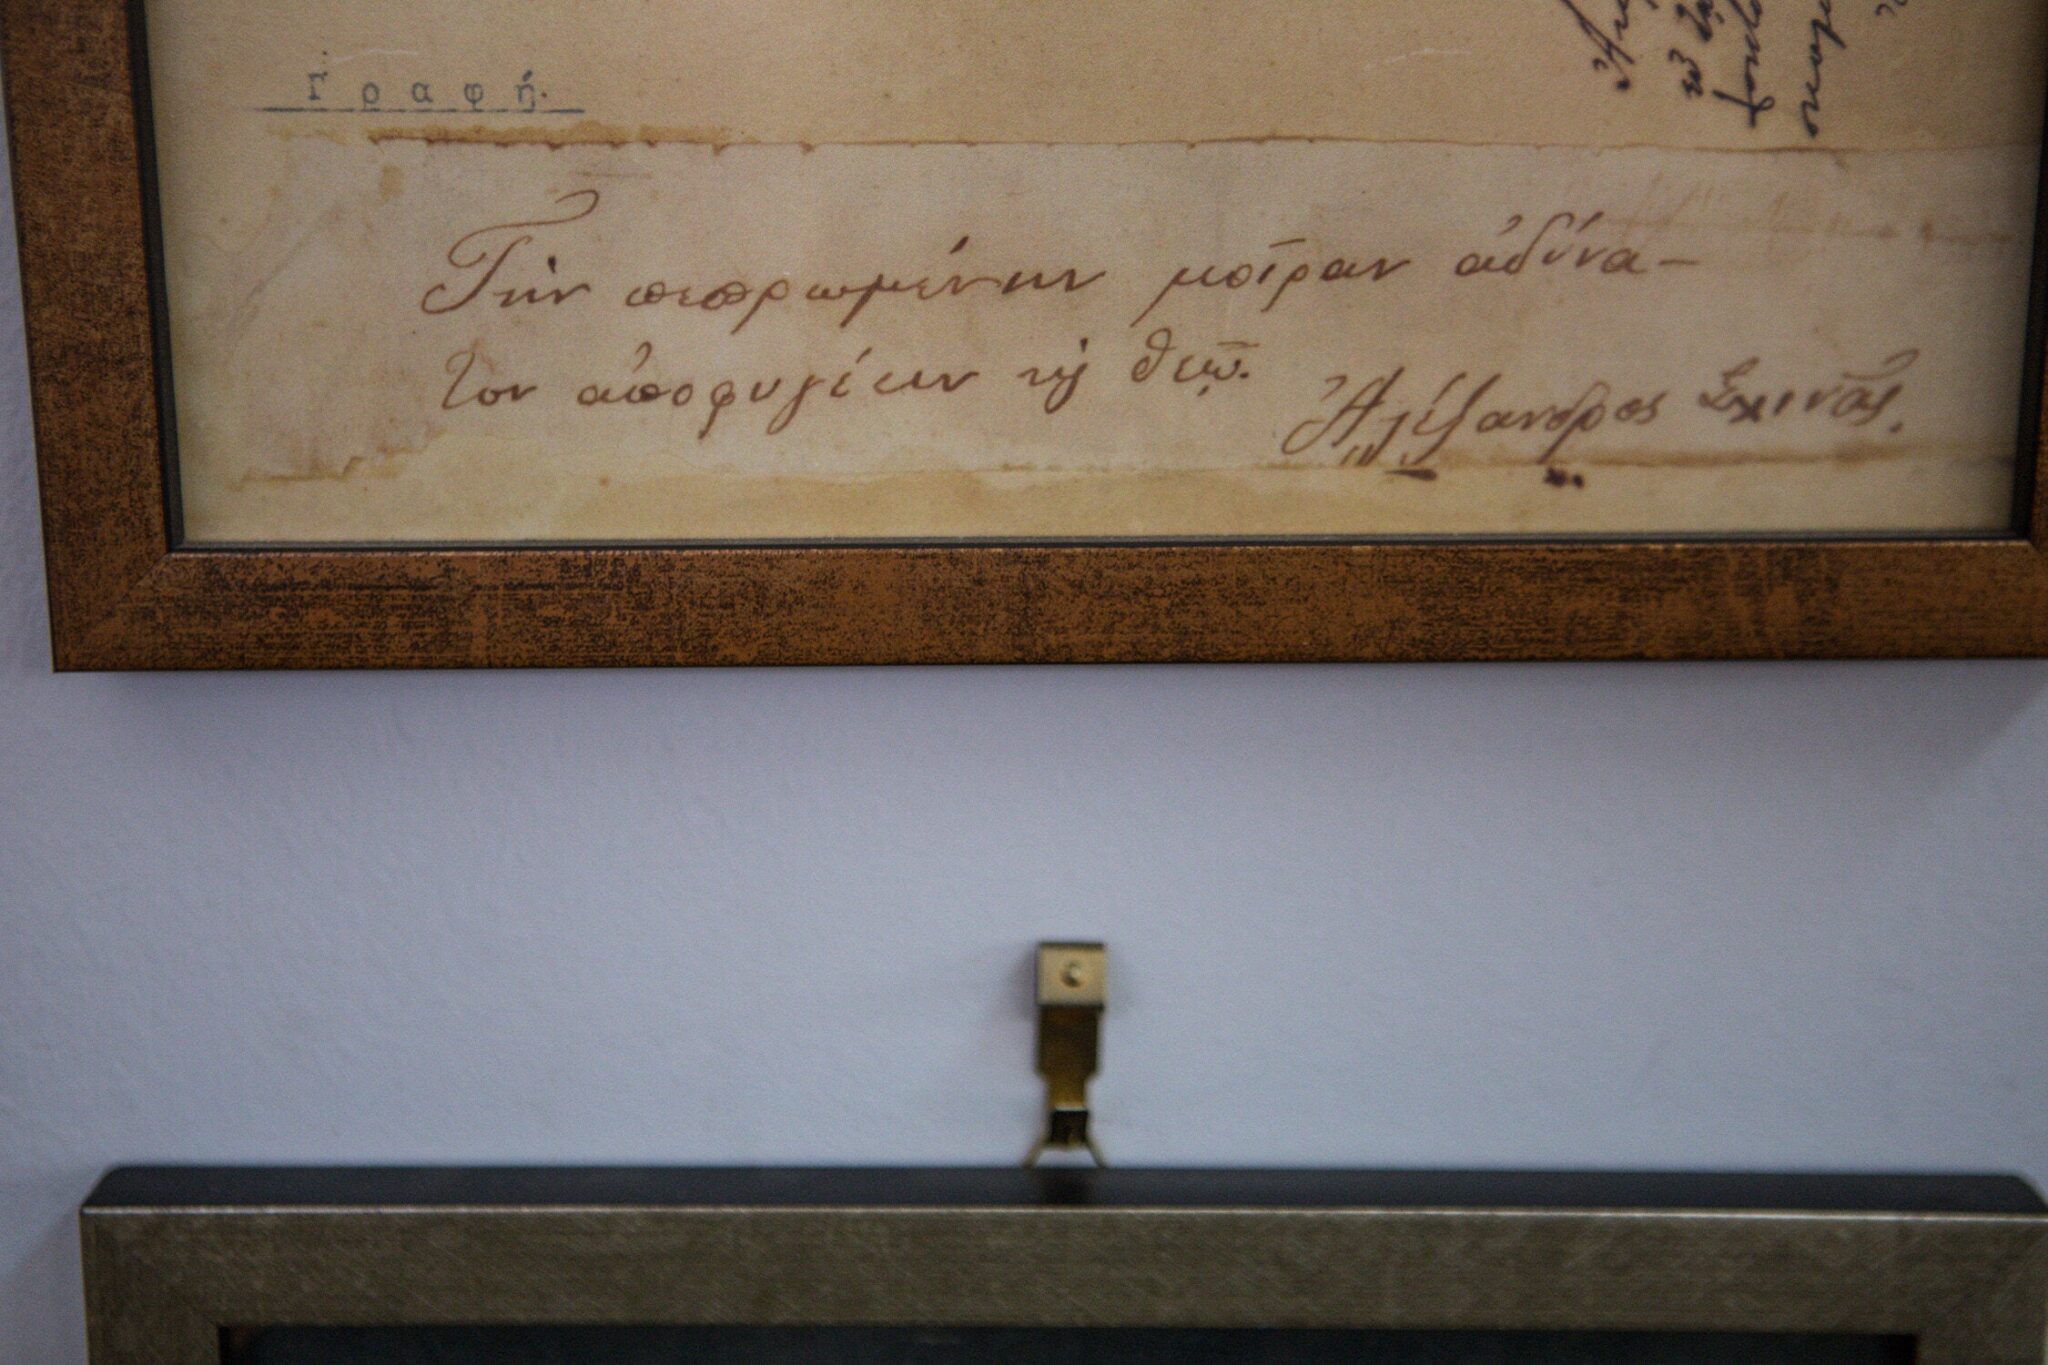 Γραφή.
Τὴν πεπρωμένην μοῖραν ἀδύνα-
τον ἀποφυγέειν τῷ θεῷ.
Ἀλέξανδρος Σχινᾶς.